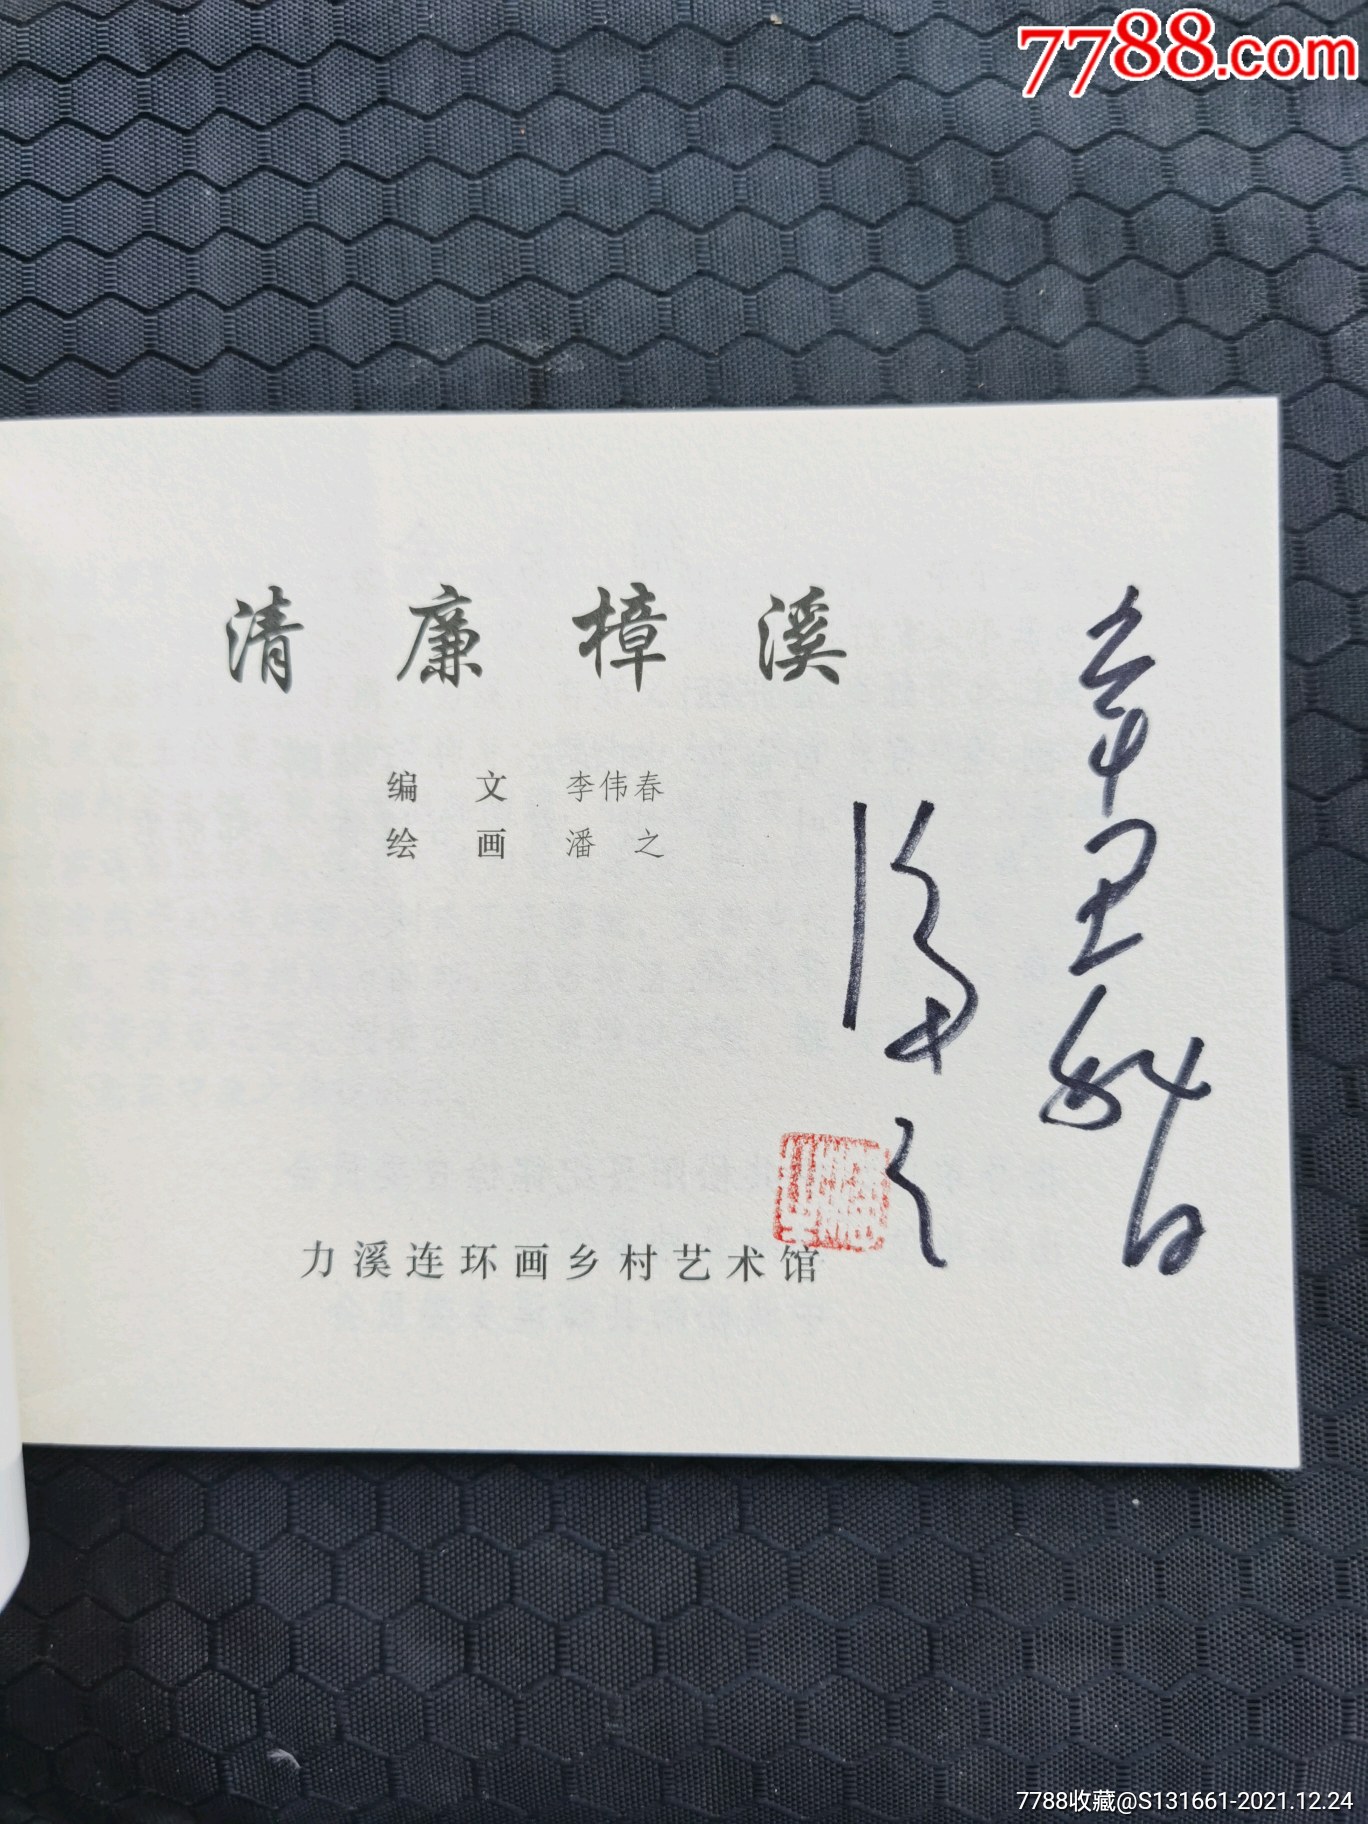 7788.com
清廉樟溪
编文 李伟春
绘画 潘之
辛丑秋日
潘之
力溪连环画乡村艺术馆
7788收藏@S131661-2021.12.24